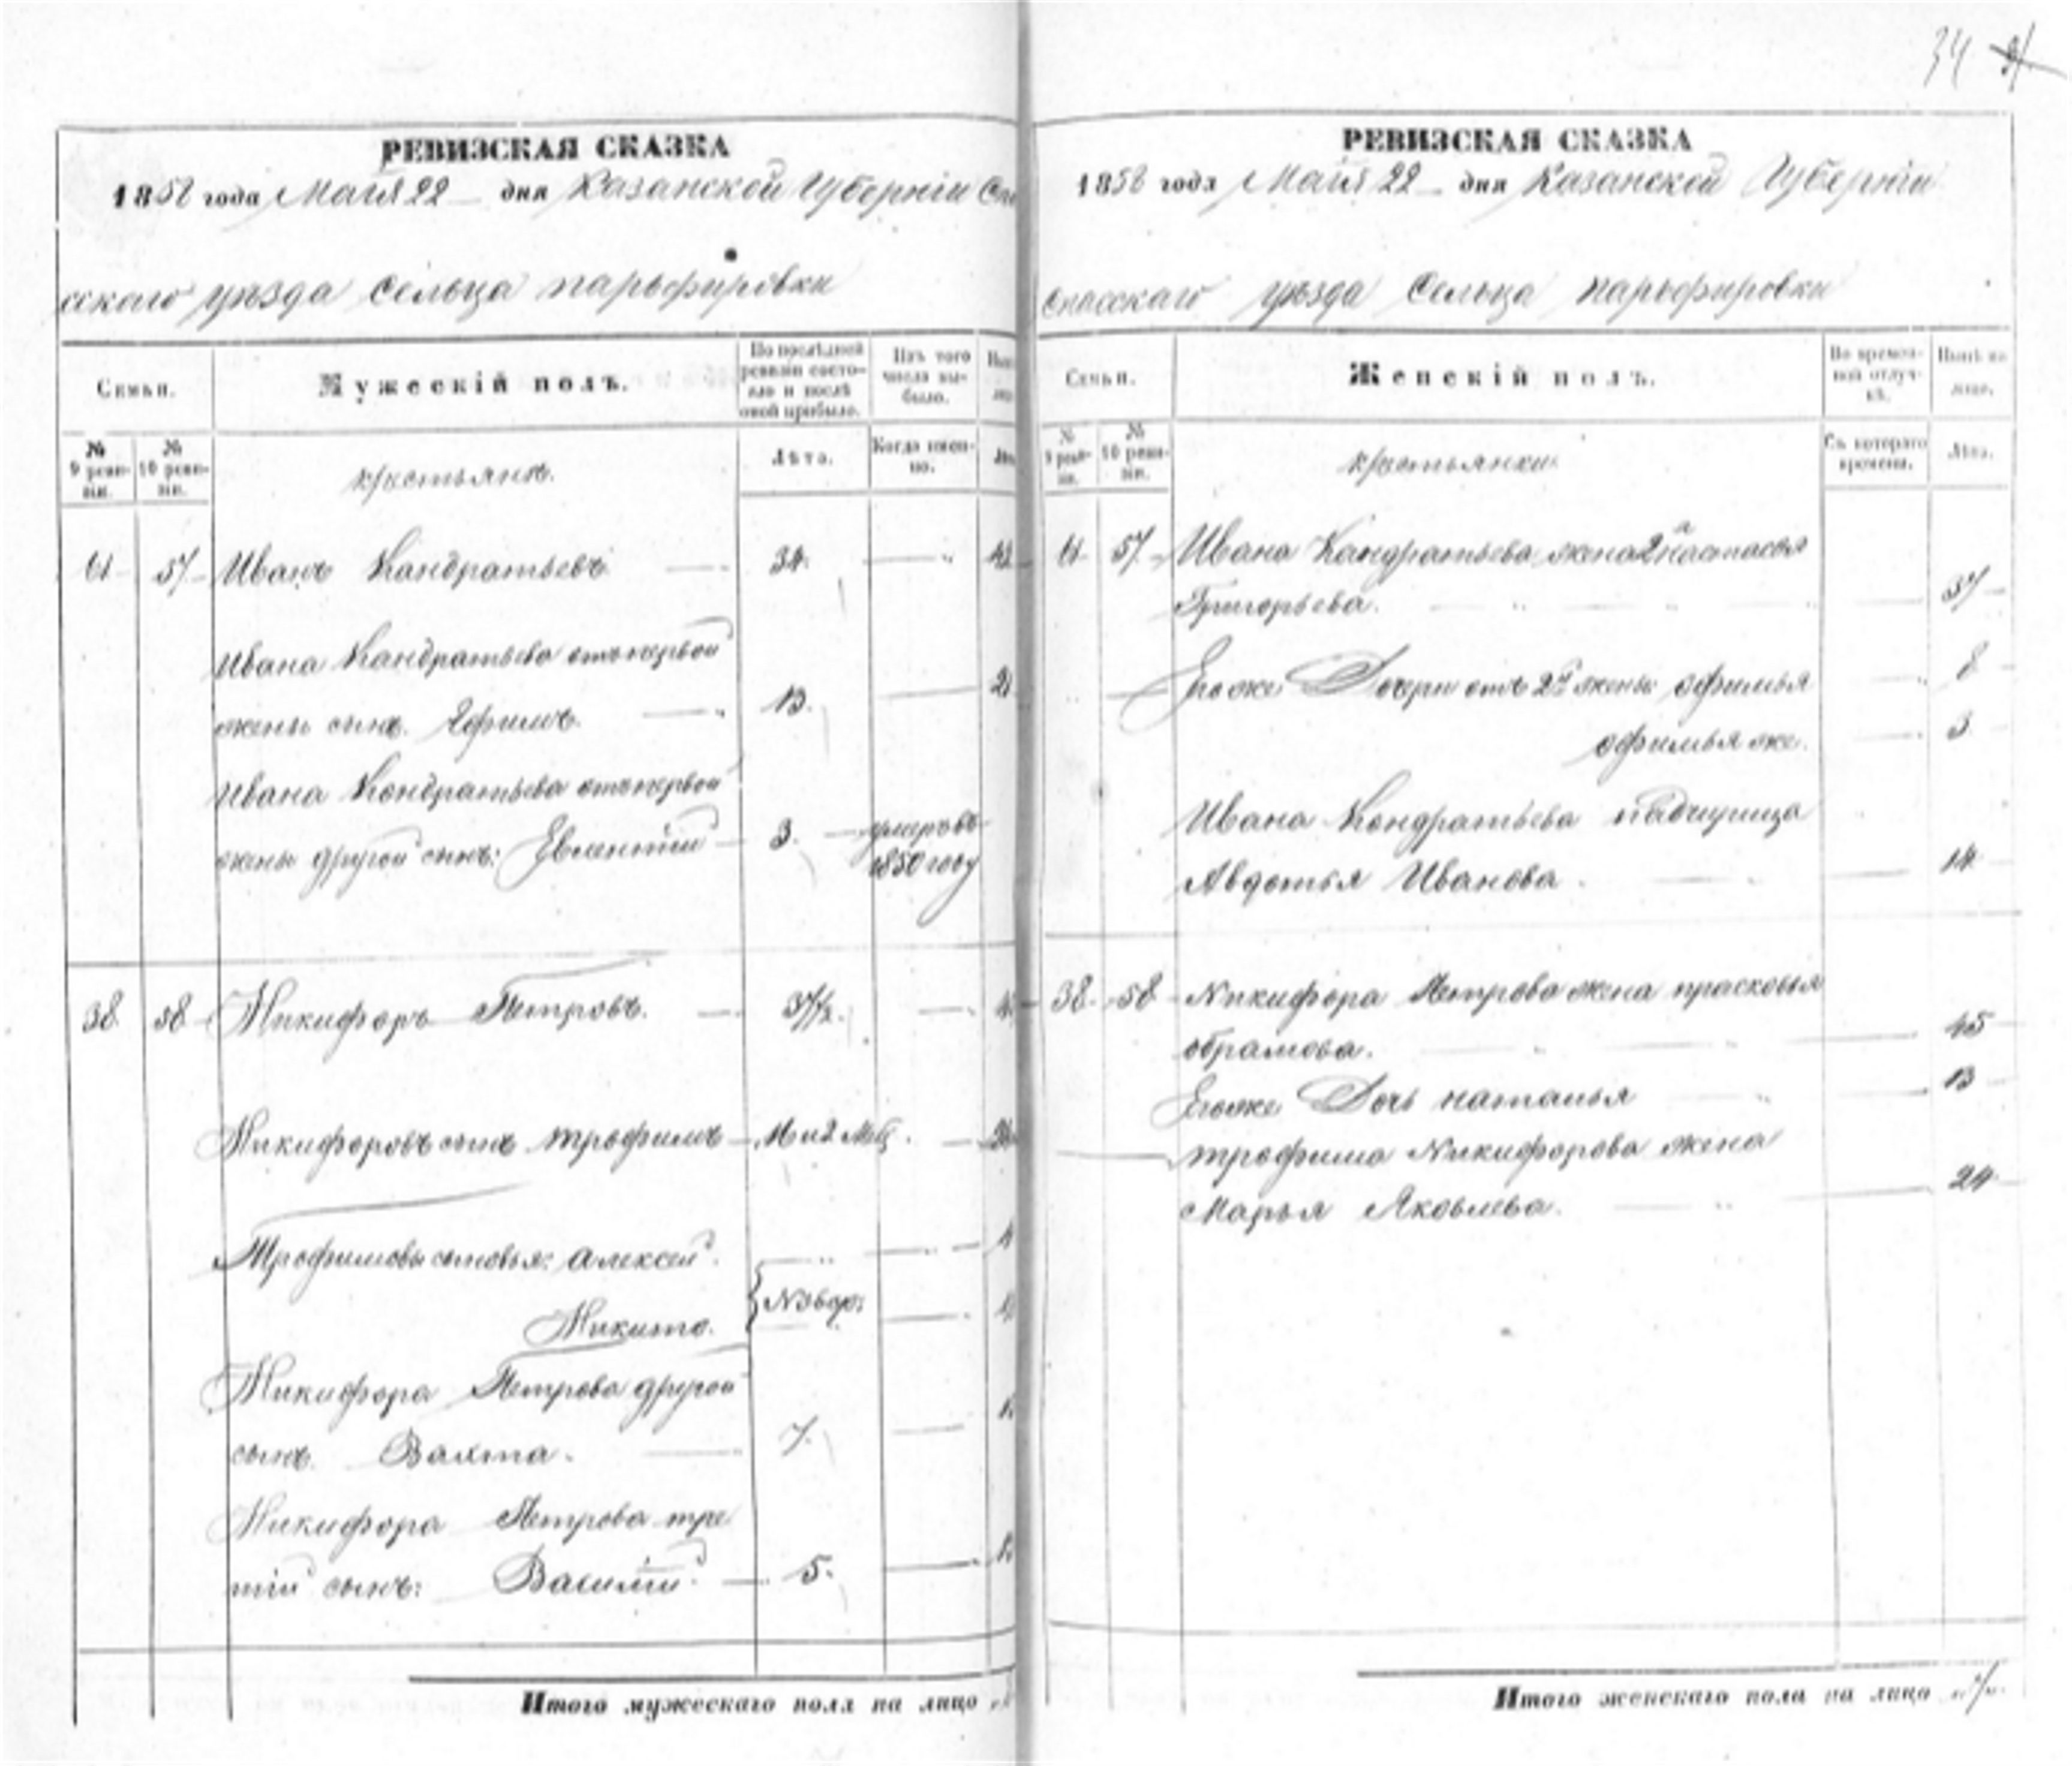 34
РЕВИЗСКАЯ СКАЗКА
1858 года Майя 22 дня Казанской Губернiи Спа
сскаго уѣзда сельца парьфировки
Семьи.
Мужескiй полъ.
По послѣдней ревизiи состояло и послѣ оной прибыло.
Изъ того числа выбыло.
№ 9 ревизiи.
№ 10 ревизiи.
крестьянъ.
Лѣта.
Когда именно.
61 57 Иванъ Кандратьевъ 34.
Ивана Кандратьева отъ первой
жены сынъ Ефимъ. 13.
Ивана Кондратьева отъ первой
жены другой сынъ: Евлентiй 3. умеръ въ
1850 году
38 58 Никифоръ Петровъ. 37½.
Никифоровъ сынъ трофимъ
Трофимовы сыновья: Алексей.
Никита.
Никифора Петрова другой
сынъ. 7.
Никифора Петрова тре
тiй сынъ: Василiй. 5.
Итого мужескаго пола на лицо
РЕВИЗСКАЯ СКАЗКА
1858 года Майя 22 дня Казанской Губернiи
Спасскаго уѣзда Сельца парьфировки
Семьи.
Женскiй полъ.
Во временной отлучкѣ.
Нынѣ на лицо.
№ 9 ревизiи.
№ 10 ревизiи.
крестьянки
Съ котораго времени.
Лѣта.
61 57 Ивана Кандратьева жена 2я настасья
Григорьева. 37
Егоже Дочери отъ 2й жены офимья 8
офимья же. 3
Ивана Кондратьева падчерица
Авдотья Иванова. 14
38 58 Никифора Петрова жена прасковья
обрамова. 45
Егоже Дочь наталья 13
трофима Никифорова жена
Марья Яковлева. 24
Итого женскаго пола на лицо 7